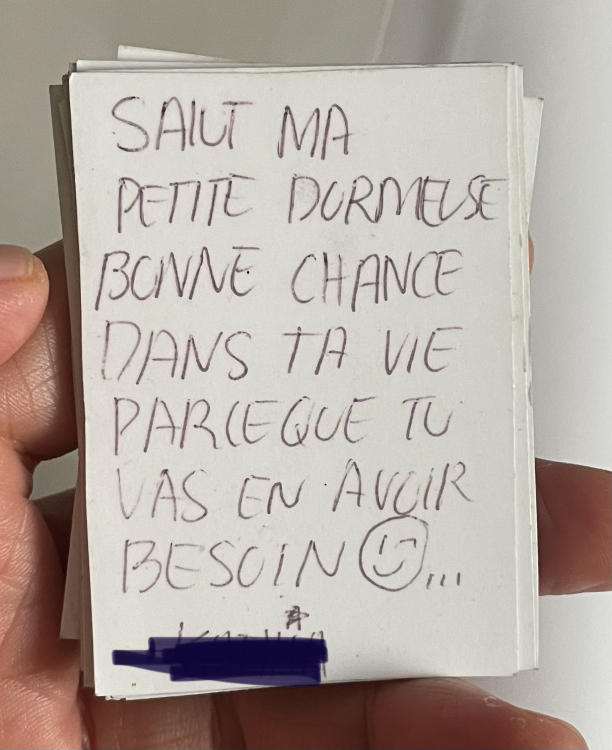 SALUT MA
PETITE DORMEUSE
BONNE CHANCE
DANS TA VIE
PARCEQUE TU
VAS EN AVOIR
BESOIN ...